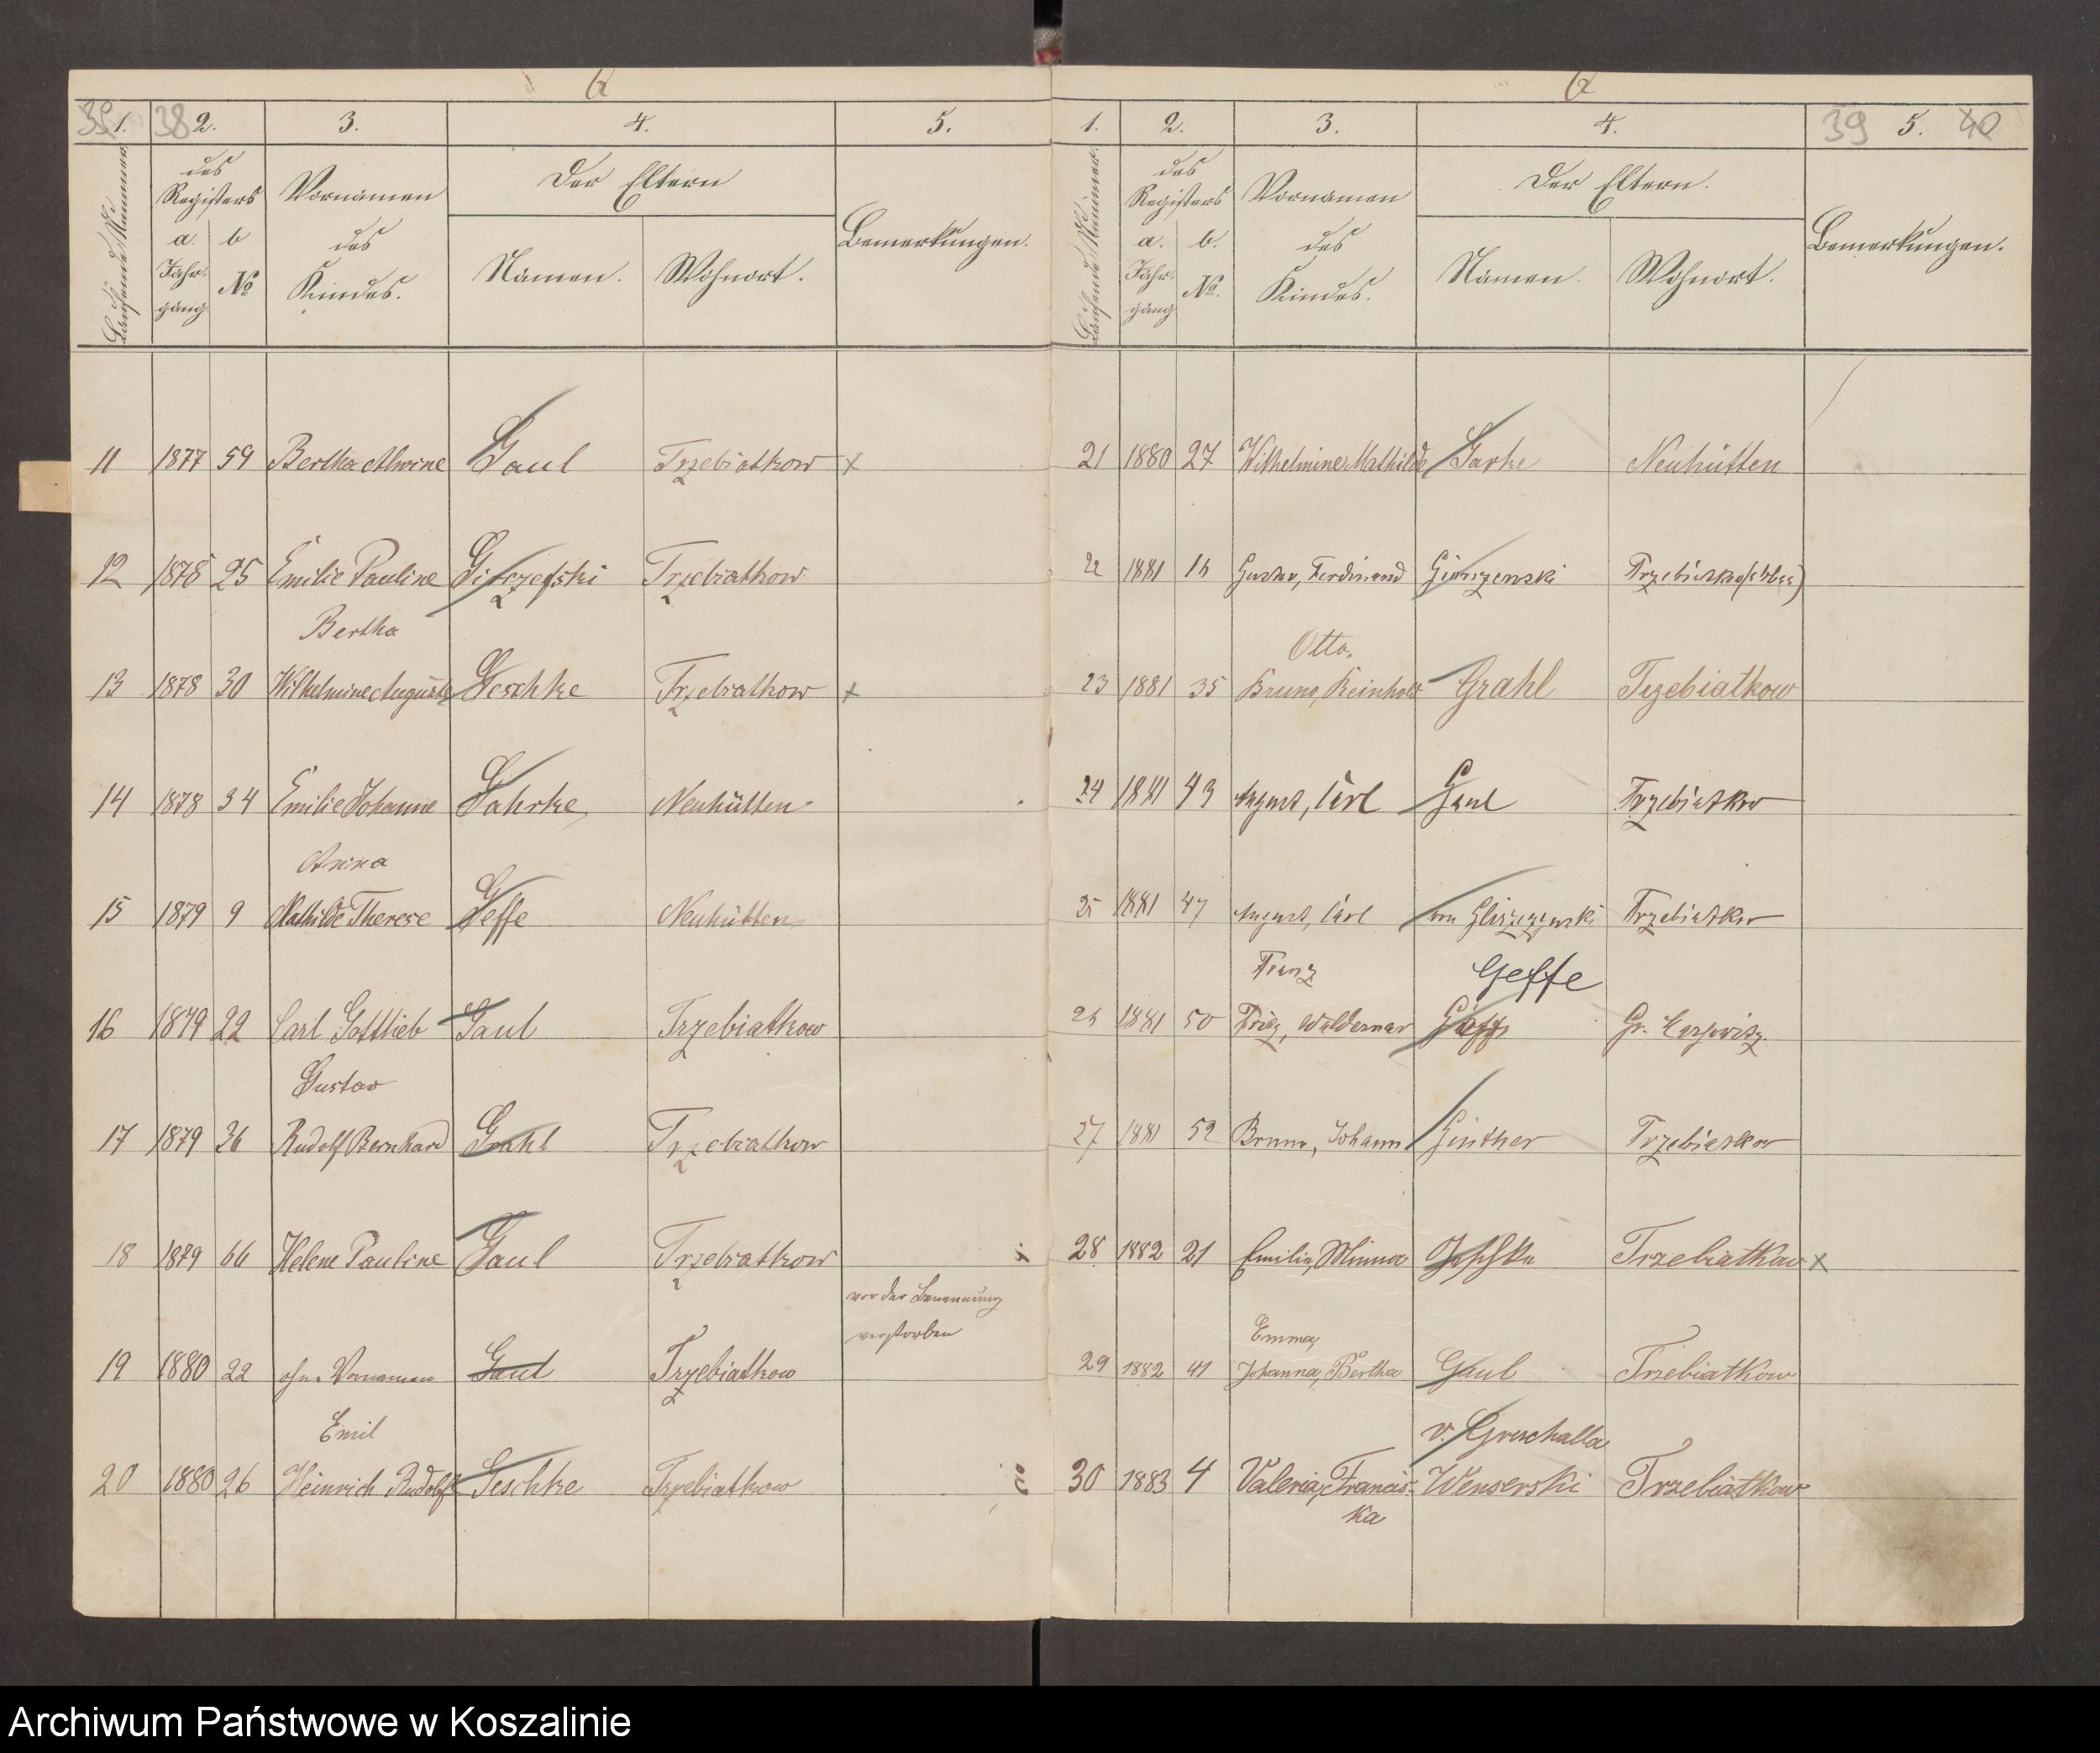 G
39 1. 38 2. 3. 4. 5.
Laufende Nummer
des Registers
a. Jahrgang
b №
Vornamen des Kindes.
Der Eltern
Namen. Wohnort.
Bemerkungen.
11 1877 59 Bertha Alwine Gaul Trzebiatkow x
12 1878 25 Emilie Pauline Trzebiatkow
Bertha
13 1878 30 Wilhelmine Auguste Geschke Trzebiatkow x
14 1878 34 Emilie Johanne Gahrke Neuhütten
Anna
15 1879 9 Mathilde Therese Geffe Neuhütten
16 1879 22 Carl Gottlieb Gaul Trzebiatkow
Gustav
17 1879 36 Rudolf Bernhard Grahl Trzebiatkow
18 1879 66 Helene Pauline Gaul Trzebiatkow
vor der Benennung
verstorben
19 1880 22 ohne Vornamen Gaul Trzebiatkow
Emil
20 1880 26 Heinrich Rudolf Geschke Trzebiatkow
G
1. 2. 3. 4. 39 5. 40
Laufende Nummer
des Registers
a. Jahrgang
b. №.
Vornamen des Kindes.
Der Eltern.
Namen. Wohnort.
Bemerkungen.
21 1880 27 Wilhelmine Mathilde Garke Neuhütten
22 1881 Gustav, Ferdinand
Otto,
23 1881 35 Bruno, Reinhold Grahl Trzebiatkow
24 1881 43 August, Carl Gaul Trzebiatkow
25 1881 47 August, Carl von Trzebiatkow
Franz Geffe
26 1881 50 Fritz, Waldemar Gr.
27 1881 52 Bruno, Johann Günther Trzebiatkow
28 1882 21 Emilie, Minna Geschke Trzebiatkow x
Emma,
29 1882 41 Johanna, Bertha Gaul Trzebiatkow
v. Grschalla
30 1883 4 Valeria, Francis- Wenserski Trzebiatkow
ka
Archiwum Państwowe w Koszalinie